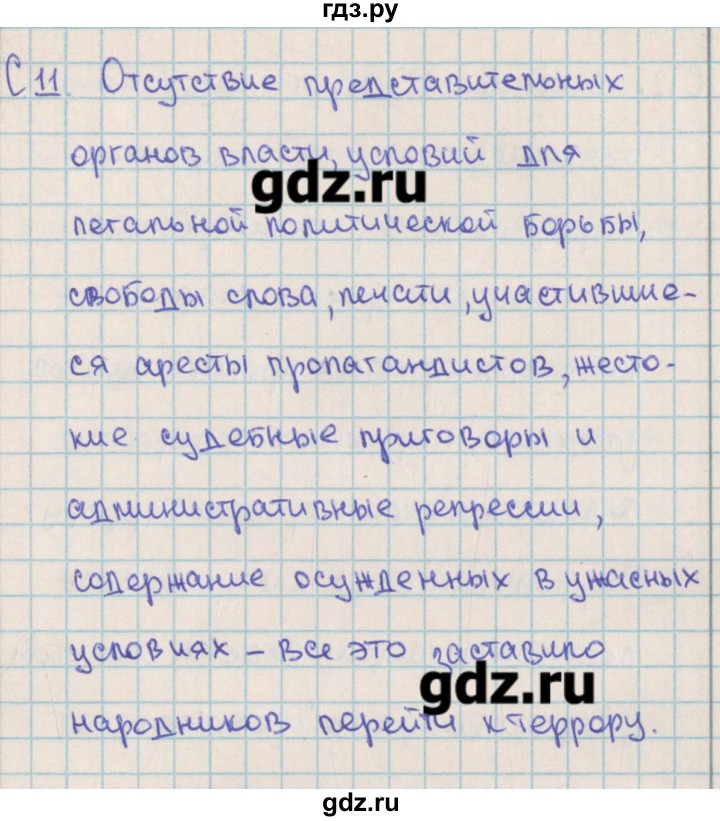 гдз.ру
С 11. Отсутствие представительных
органов власти, условий для
gdz.ru
легальной политической борьбы,
свободы слова, печати, участившие-
ся аресты пропагандистов, жесто-
кие судебные приговоры и
административные репрессии,
содержание осужденных в ужасных
условиях – все это заставило
gdz.ru
народников перейти к террору.
gdz.ru